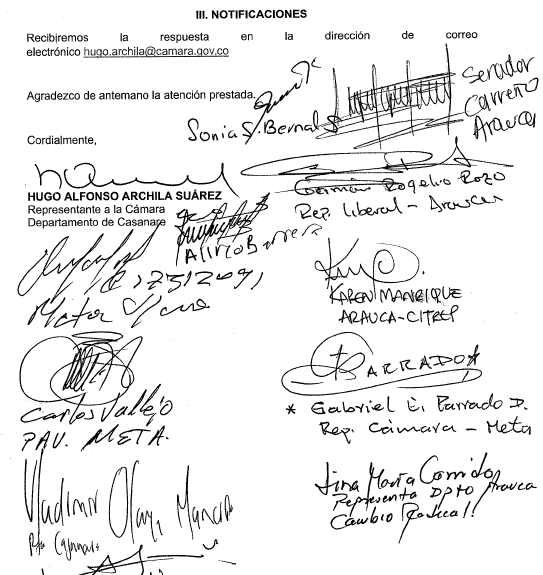 III. NOTIFICACIONES
Recibiremos la respuesta en la dirección de correo
electrónico hugo.archila@camara.gov.co
Agradezco de antemano la atención prestada.
Sonia S. Bernal S
Senador
Carreño
Arauca
Cordialmente,
HUGO ALFONSO ARCHILA SUÁREZ
Representante a la Cámara
Departamento de Casanare
Germán Rogelio Rozo
Rep. liberal - Arauca
Alirio Barrera
KAREN MANRIQUE
ARAUCA-CITREP
Carlos Vallejo
PAV. META.
PARRADO
* Gabriel E. Parrado D.
Rep. Cámara - Meta
Vladimir Olaya Mancipe
Lina María Garrido
Representa DPTO Arauca
Cambio Radical!!